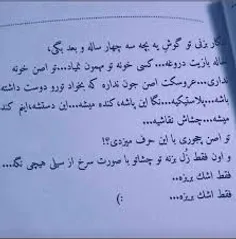 بزنی تو گوش یه بچه سه چهار ساله و بعد بگی،
ساله بازیت دروغه...کسی خونه تو مهمون نمیاد...تو اصن خونه
نداری...عروسکت اصن جون نداره که بخواد تورو دوست داشته
باشه...پلاستیکیه...نگا این پاشه، کنده میشه...این دستشه، اینم کنده
میشه...چشاش نقاشیه...
تو اصن چجوری با این حرف میزدی؟!
و اون فقط زُل بزنه تو چشاتو با صورت سرخ از سیلی هیچی نگه...
فقط اشک بریزه..
فقط اشک بریزه.. :)